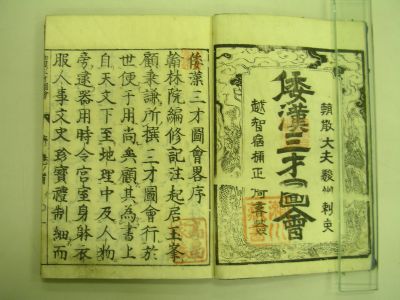 朝散大夫 刺史
倭漢三才圖會
越智宿禰正
倭漢三才圖會畧序
翰林院編修記注起居玉峯
顧秉謙所撰三才圖會行於
世便于用尚矣顧其為書上
自天文下至地理中及人物
旁逮器用時令宮室身躰衣
服人事文史珍寶禮制細而